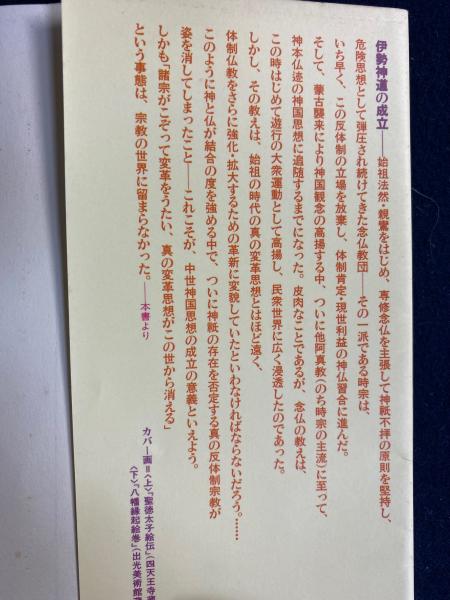 伊勢神道の成立――始祖法然・親鸞をはじめ、専修念仏を主張して神祇不拝の原則を堅持し、
危険思想として弾圧され続けてきた念仏教団――その一派である時宗は、
いち早く、この反体制の立場を放棄し、体制肯定・現世利益の神仏習合に進んだ。
そして、蒙古襲来により神国観念の高揚する中、ついに他阿真教(のち時宗の主流)に至って、
神本仏迹の神国思想に追随するまでになった。皮肉なことであるが、念仏の教えは、
この時はじめて遊行の大衆運動として高揚し、民衆世界に広く浸透したのであった。
しかし、その教えは、始祖の時代の真の変革思想とはほど遠く、
体制仏教をさらに強化・拡大するための革新に変貌していたといわなければならないだろう。……
このように神と仏が結合の度を強める中で、ついに神祇の存在を否定する真の反体制宗教が
姿を消してしまったこと――これこそが、中世神国思想の成立の意義といえよう。
しかも「諸宗がこぞって変革をうたい、真の変革思想がこの世から消える」
という事態は、宗教の世界に留まらなかった。――本書より
カバー画=〈上〉『聖徳太子絵伝』(四天王寺蔵
〈下〉『八幡縁起絵巻』(出光美術館蔵